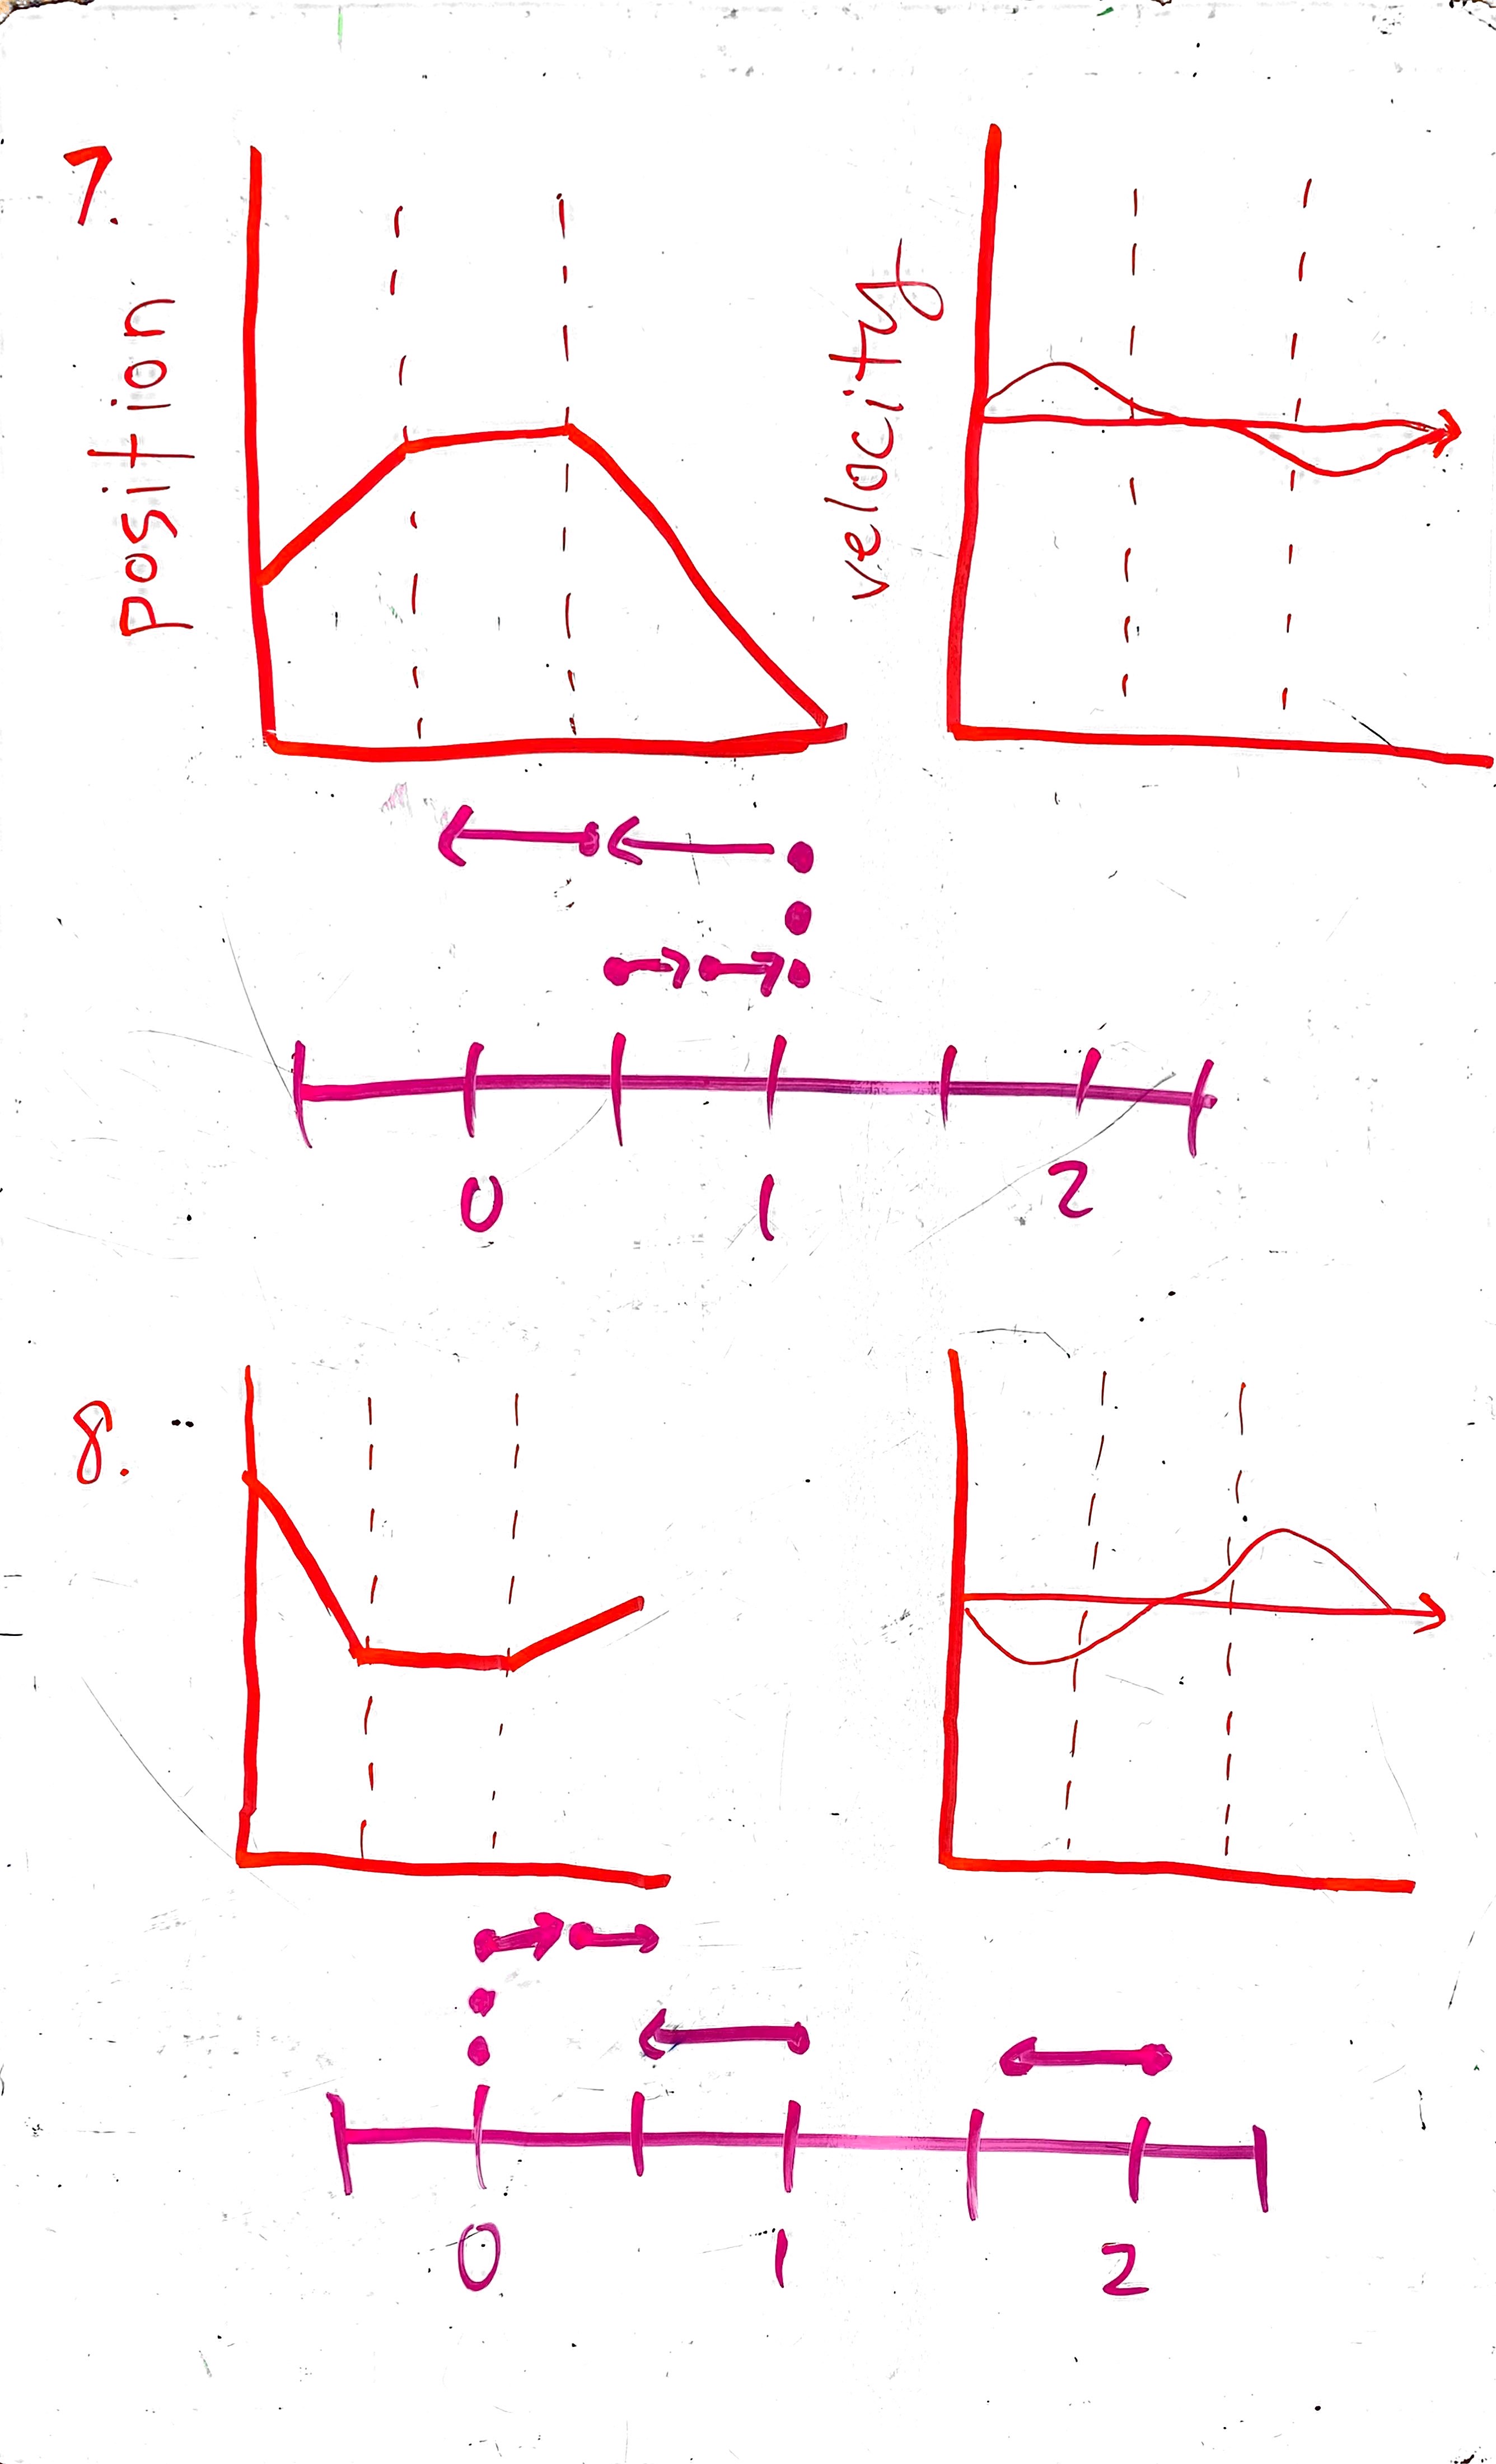 7.
position
velocity
0 1 2
8.
0 1 2